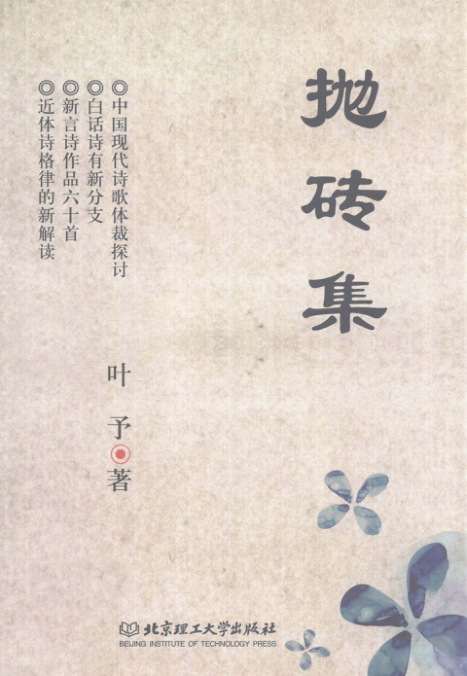 抛砖集
◎中国现代诗歌体裁探讨
◎白话诗有新分支
◎新言诗作品六十首
◎近体诗格律的新解读
叶予◉著
北京理工大学出版社
BEIJING INSTITUTE OF TECHNOLOGY PRESS